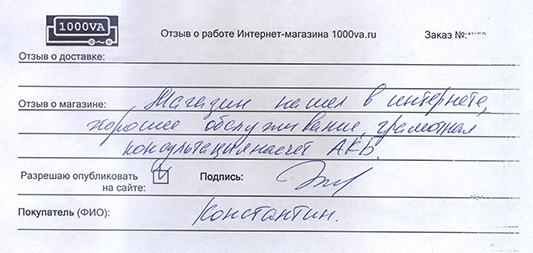 1000VA
Отзыв о работе Интернет-магазина 1000va.ru Заказ №:
Отзыв о доставке:
Отзыв о магазине: Магазин нашел в интернете,
хорошее обслуживание, грамотная
консультация насчет АКБ.
Разрешаю опубликовать
на сайте: Подпись:
Покупатель (ФИО): Константин.